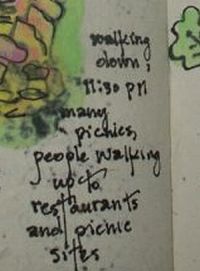 walking
down,
11:30 pm
many
picnics,
people walking
up to
restaurants
and picnic
sites